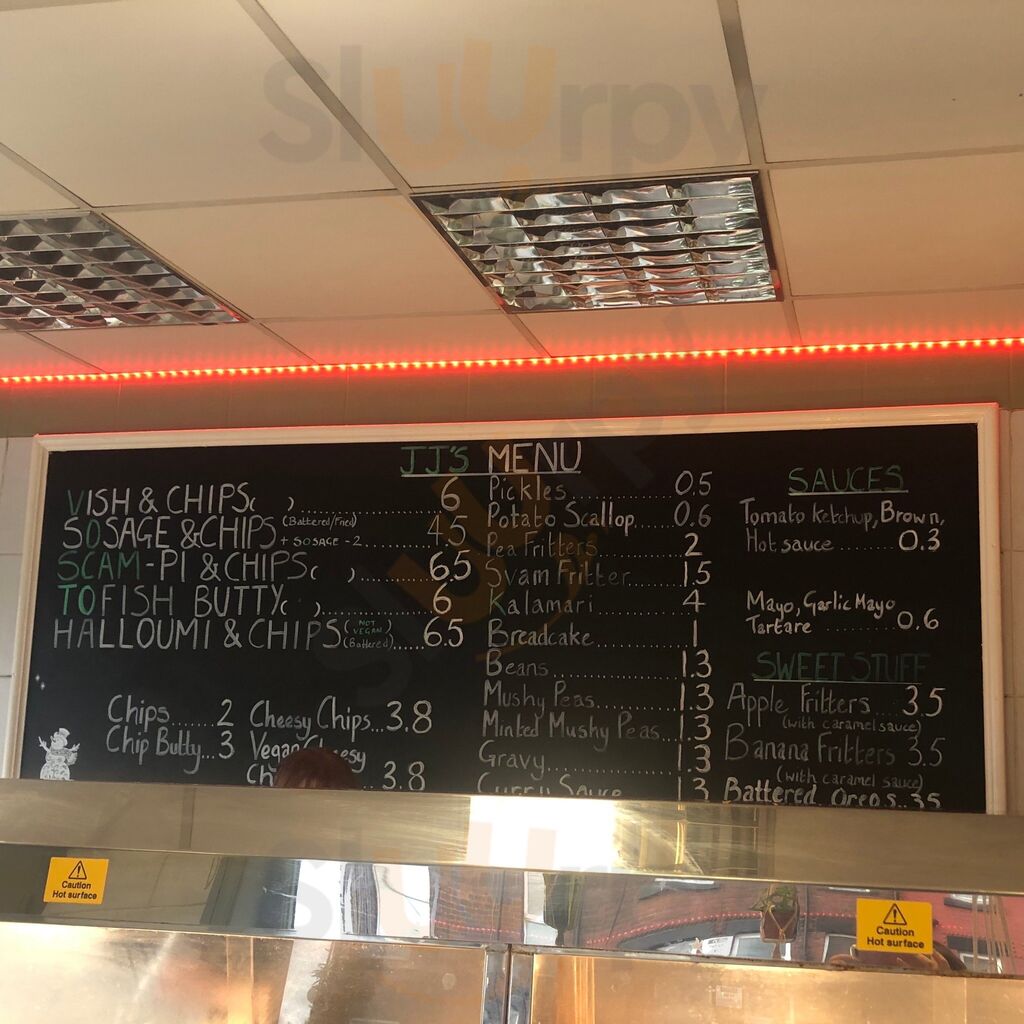 Sluurpy
JJ'S MENU
VISH & CHIPS( )..................6
SOSAGE & CHIPS (Battered/Fried) + SOSAGE - 2..........4.5
SCAM-PI & CHIPS( )..........6.5
TOFISH BUTTY( )..........6
HALLOUMI & CHIPS (NOT VEGAN) (Battered)......6.5
Chips......2
Chip Butty...3
Cheesy Chips...3.8
Vegan Cheesy
3.8
Pickles..........0.5
Potato Scallop.....0.6
Pea Fritters..........2
Svam Fritter..........1.5
Kalamari..........4
Breadcake..........1
Beans..........1.3
Mushy Peas..........1.3
Minted Mushy Peas...1.3
Gravy..........1.3
Curry Sauce
SAUCES
Tomato Ketchup, Brown,
Hot sauce ........0.3
Mayo, Garlic Mayo
Tartare ..........0.6
SWEET STUFF
Apple Fritters 3.5
(with caramel sauce)
Banana Fritters 3.5
(with caramel sauce)
Battered Oreos..3.5
Caution
Hot surface
Caution
Hot surface